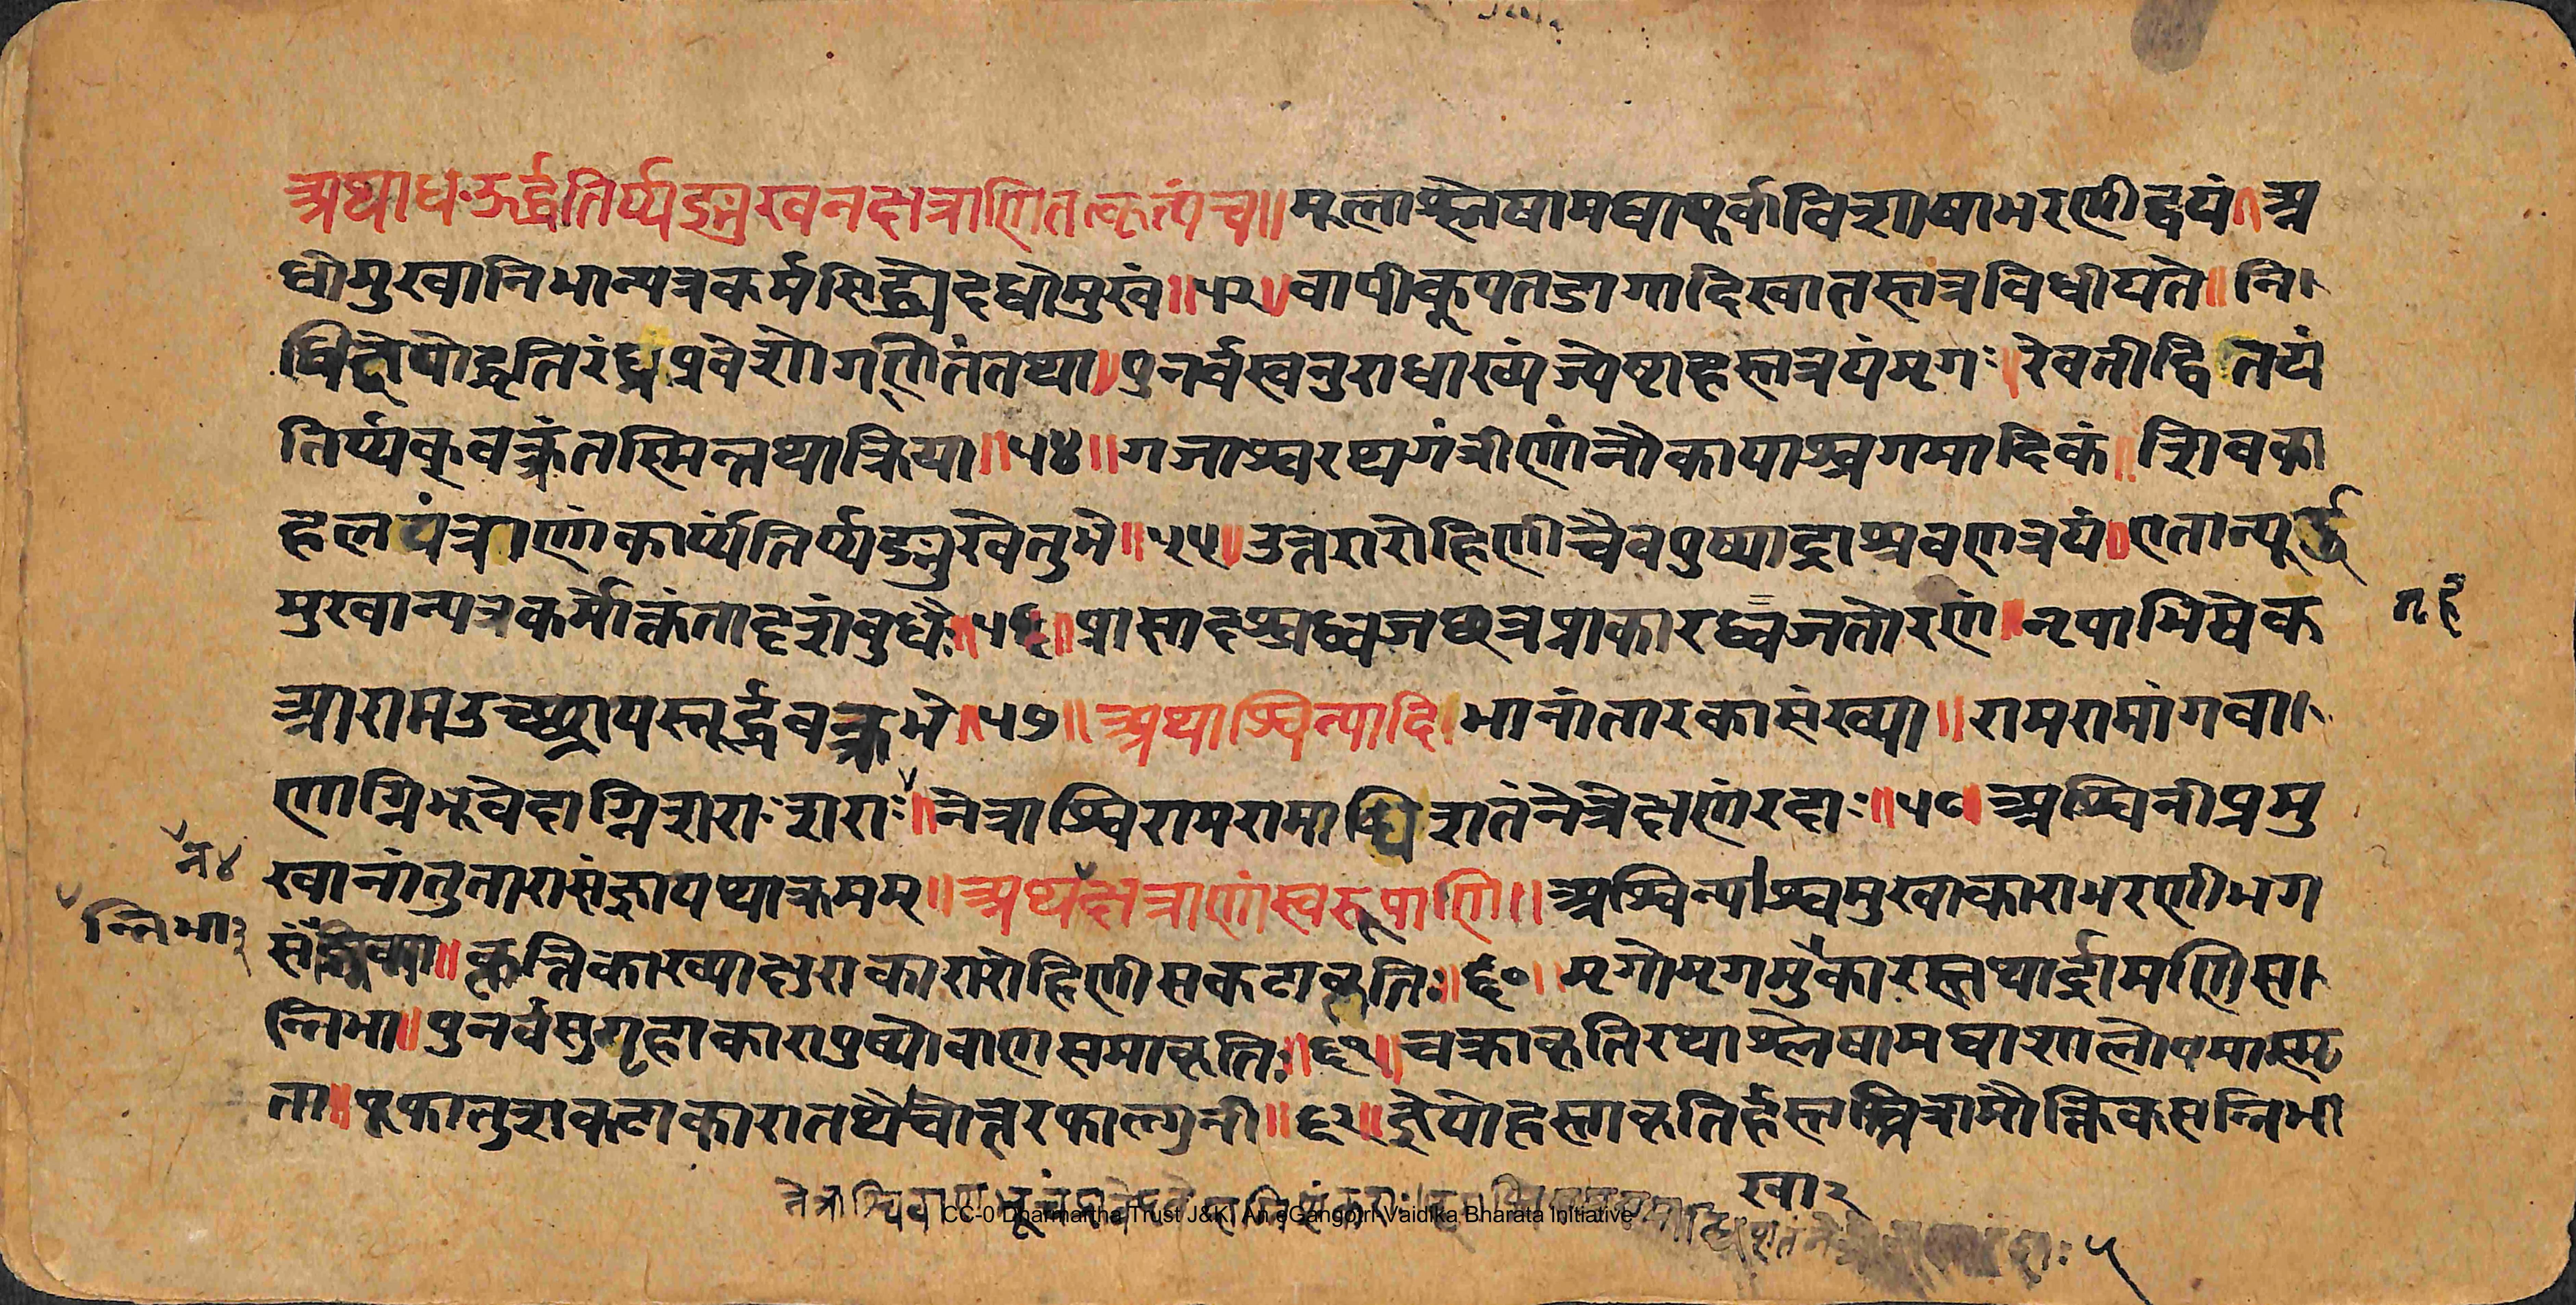 अथाधःऊर्द्ध्वतिर्य्यङ्मुखनक्षत्राणितत्कृत्यंच॥ मूलाश्लेषामघापूर्वाविशाषाभरणीद्वयं। अ
धोमुखानिभान्यत्रकर्मसिद्ध्येदधोमुखं॥५२॥वापीकूपतडागादिखातस्तत्रविधीयते॥नि
धिक्षेपोद्धृतिरंध्रप्रवेशोगणितंतथा॥पुनर्वस्वनुराधाख्यंज्येष्टाहस्तत्रयंमृगः॥रेवतीद्वितयं
तिर्य्यक्वक्त्रंतस्मिन्तथाक्रिया॥५४॥गजाश्वरथगंत्रीणांनौकापाश्वगमादिकं॥शिवका
हलयंत्राणांकार्य्यंतिर्य्यङ्मुखेतुभे॥५५॥उत्तरारोहिणीचैवपुष्यार्द्राश्रवणत्रयं॥एतान्यूर्द्ध्व
मुखान्यत्रकर्मोक्तंतादृशंबुधैः॥५६॥प्रासादश्चध्वजछत्रप्राकारध्वजतोरणं॥नृपाभिषेक
आरामउच्छ्रायस्तूर्द्ध्ववक्त्रभे॥५७॥अथाश्विन्यादिभानांतारकासंख्या॥रामरामांगवा
णाग्निभूवेदाग्निशराःशराः॥नेत्राश्विरामरामाब्धिशतंनेत्रेक्षणंरदाः॥५८॥अश्विनीप्रमु
खानांतुतारासंज्ञायथाक्रमम्॥अथनक्षत्राणांस्वरूपाणि॥अश्विन्याश्वमुखाकाराभरणीभग
कृत्तिकाख्याक्षुराकारारोहिणीसकटाकृतिः॥६०॥मृगोमृगमुकारस्तथार्द्रामणिस
न्निभा॥पुनर्वसुगृहाकारापुष्योवाणसमाकृतिः॥६१॥चक्राकृतिरथाश्लेषामघाशालोपमास्मृ
ता॥पूफातुशकटाकारातथैवोत्तरफाल्गुनी॥६२॥ज्ञेयोहस्ताकृतिर्हस्तश्चित्रामौक्तिकसन्निभा
न्निभा३
खा२
CC-0 Dharmartha Trust J&K. An eGangotri-Vaidika Bharata Initiative